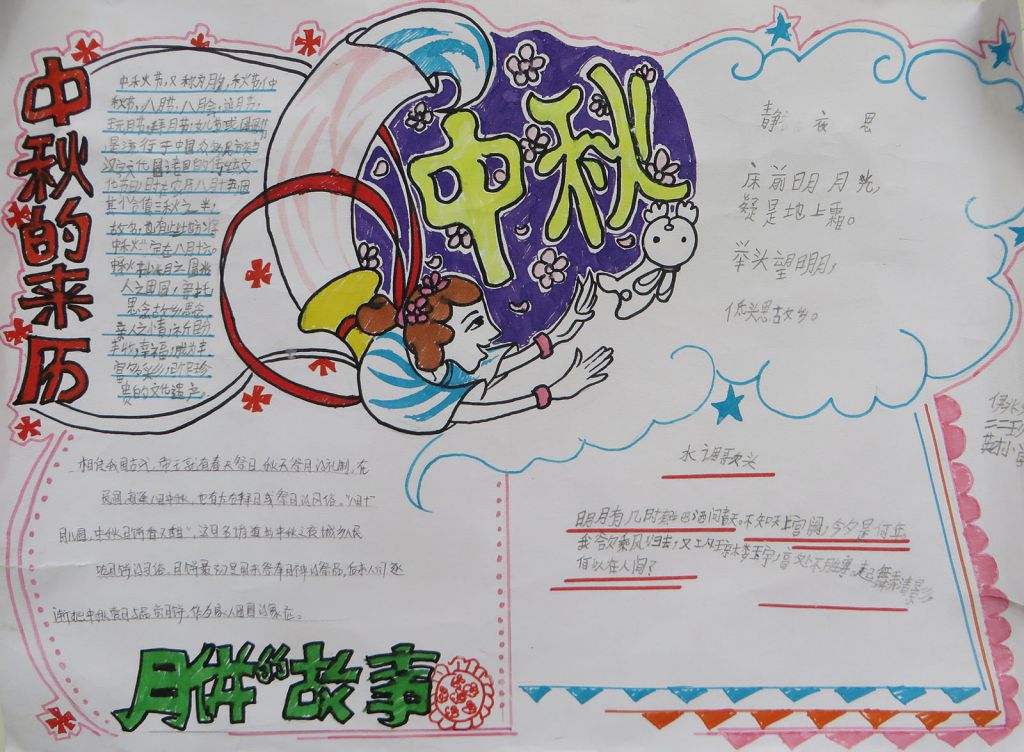 中秋的来历
中秋节,又称月夕,秋节,仲
秋节,八月节,八月会,追月节,
玩月节,拜月节,女儿节或团圆节,
是流行于中国众多民族与
汉字文化圈诸国的传统文
化节日,时在农历八月十五;因
其恰值三秋之半,
故名,也有些地方将
中秋节定在八月十六。
中秋节以月之圆兆
人之团圆,寄托
思念故乡,思念
亲人之情,祈盼
丰收,幸福,成为丰
富多彩,弥足珍
贵的文化遗产。
中秋
静 夜思
床前明月光,
疑是地上霜。
举头望明月,
低头思故乡。
相传我国古代,帝王就有春天祭日,秋天祭月的礼制。在
民间,每逢八月中秋,也有左右拜月或祭月的风俗。"八月十
五月儿圆,中秋月饼香又甜",这句名谚道出中秋之夜城乡人民
吃月饼的习俗。月饼最初是用来祭奉月神的祭品,后来人们逐
渐把中秋赏月与品尝月饼,作为家人团圆的象征。
月饼的故事
水调歌头
明月有几时有?把酒问青天。不知天上宫阙,今夕是何年。
我欲乘风归去,又恐琼楼玉宇,高处不胜寒。起舞弄清影,
何似在人间?